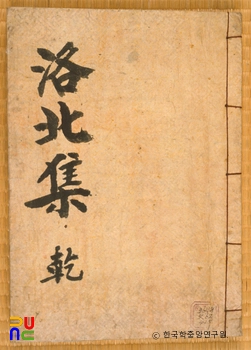 洛北集
乾
© 한국학중앙연구원